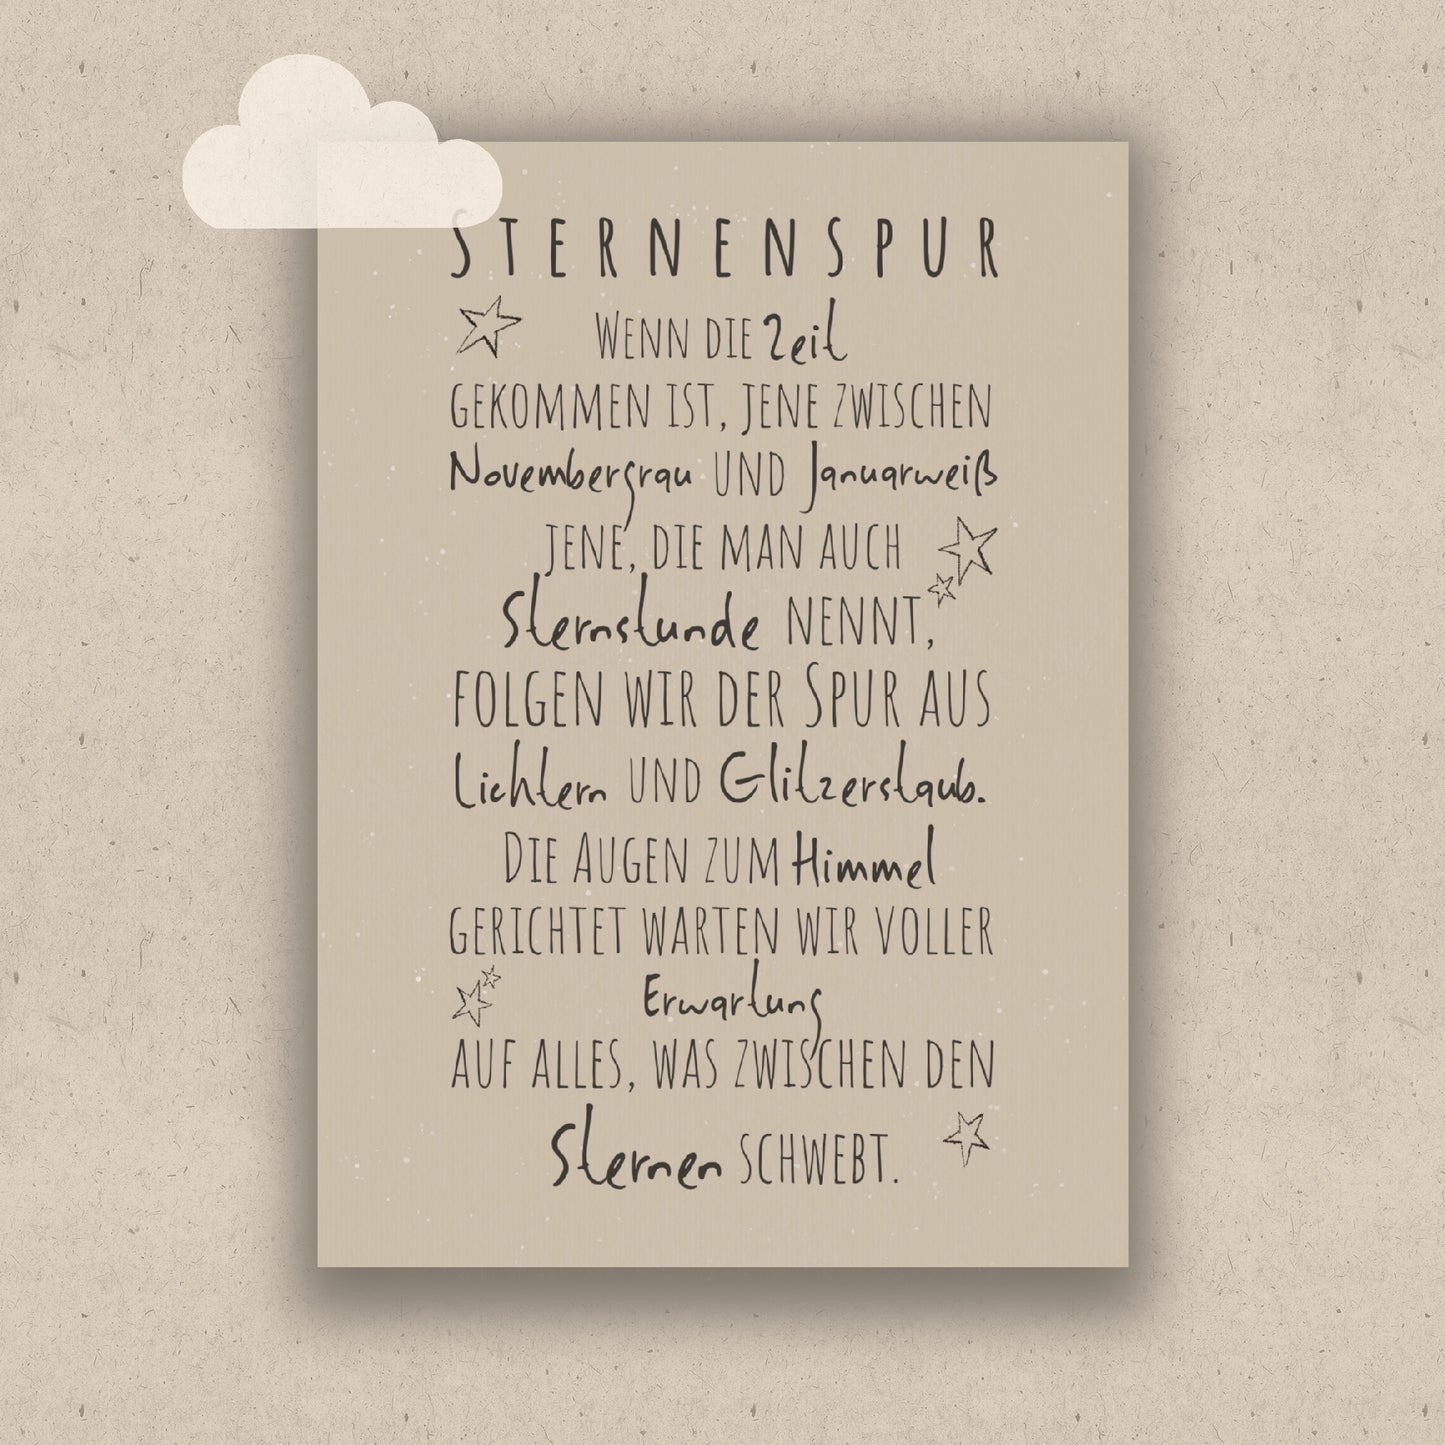 STERNENSPUR
WENN DIE Zeit
GEKOMMEN IST, JENE ZWISCHEN
Novembergrau UND Januarweiß
JENE, DIE MAN AUCH
Sternstunde NENNT,
FOLGEN WIR DER SPUR AUS
Lichtern UND Glitzerstaub.
DIE AUGEN ZUM Himmel
GERICHTET WARTEN WIR VOLLER
Erwartung
AUF ALLES, WAS ZWISCHEN DEN
Sternen SCHWEBT.